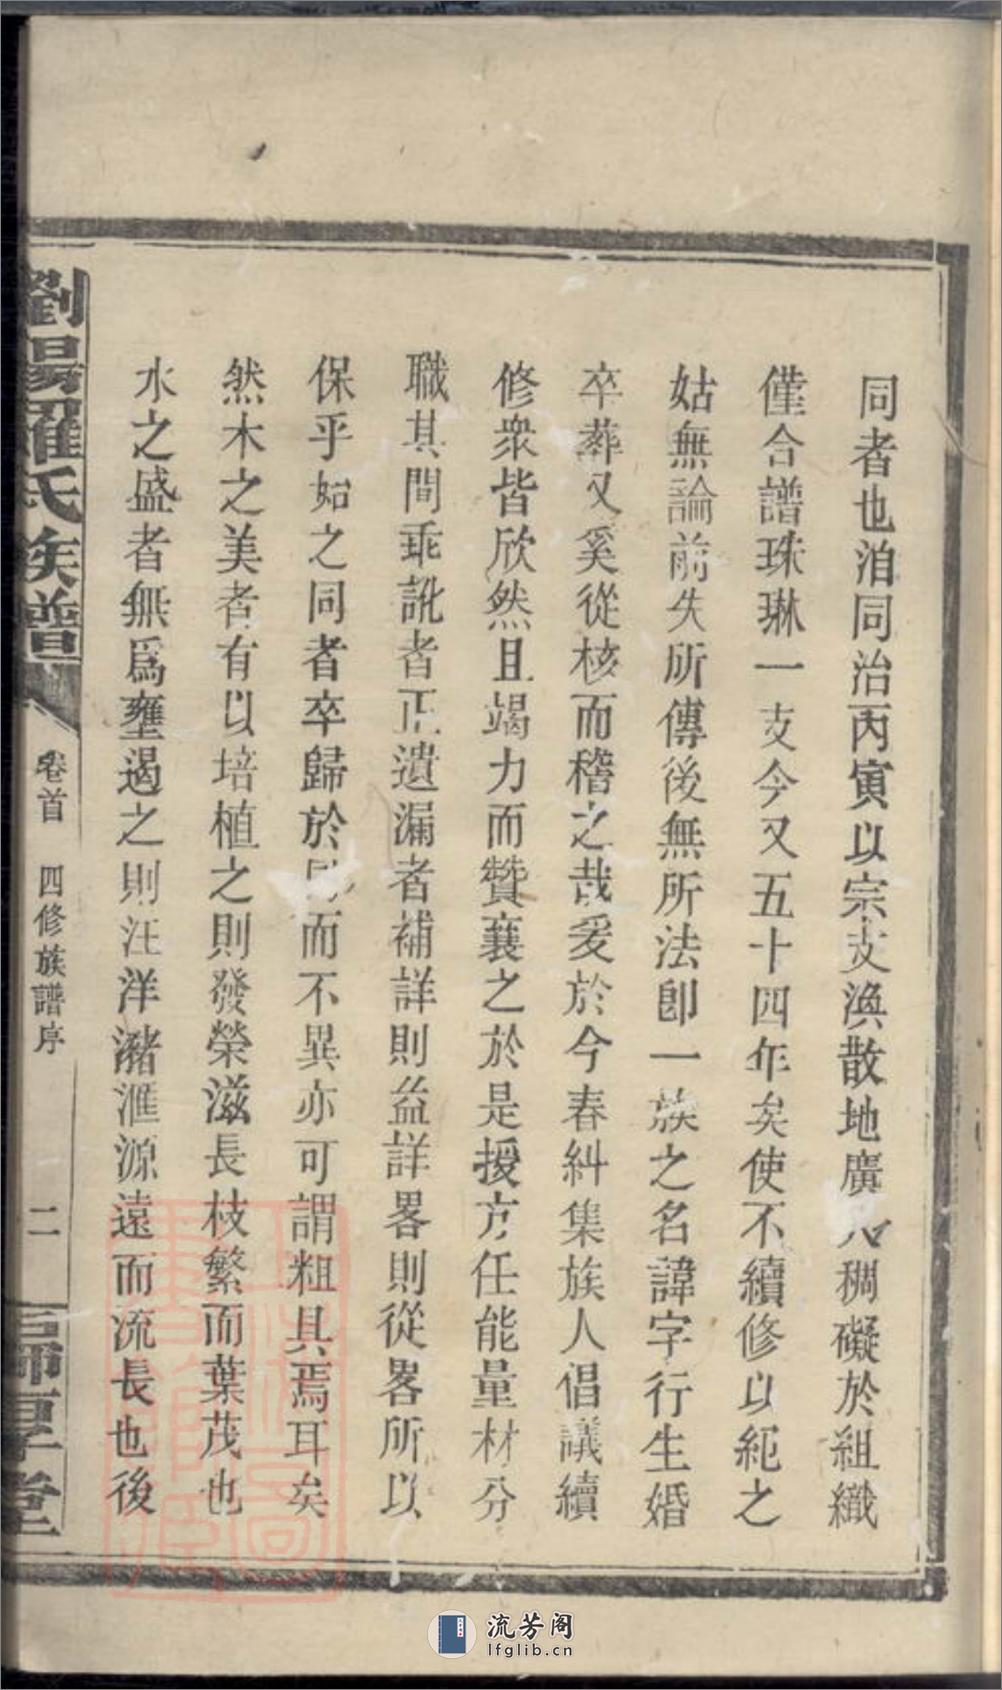 同者也洎同治丙寅以宗支渙散地廣人稠礙於組織
僅合譜珠琳一支今又五十四年矣使不續修以紀之
姑無論前失所傳後無所法卽一族之名諱字行生婚
卒葬又奚從核而稽之哉爰於今春糾集族人倡議續
修衆皆欣然且竭力而贊襄之於是援方任能量材分
職其間乖訛者正遺漏者補詳則益詳畧則從畧所以
保乎始之同者卒歸於同而不異亦可謂粗具焉耳矣
然木之美者有以培植之則發榮滋長枝繁而葉茂也
水之盛者無爲壅遏之則汪洋瀦滙源遠而流長也後
劉陽羅氏族譜
卷首 四修族譜序
二
厚堂
流芳阁
lfglib.cn